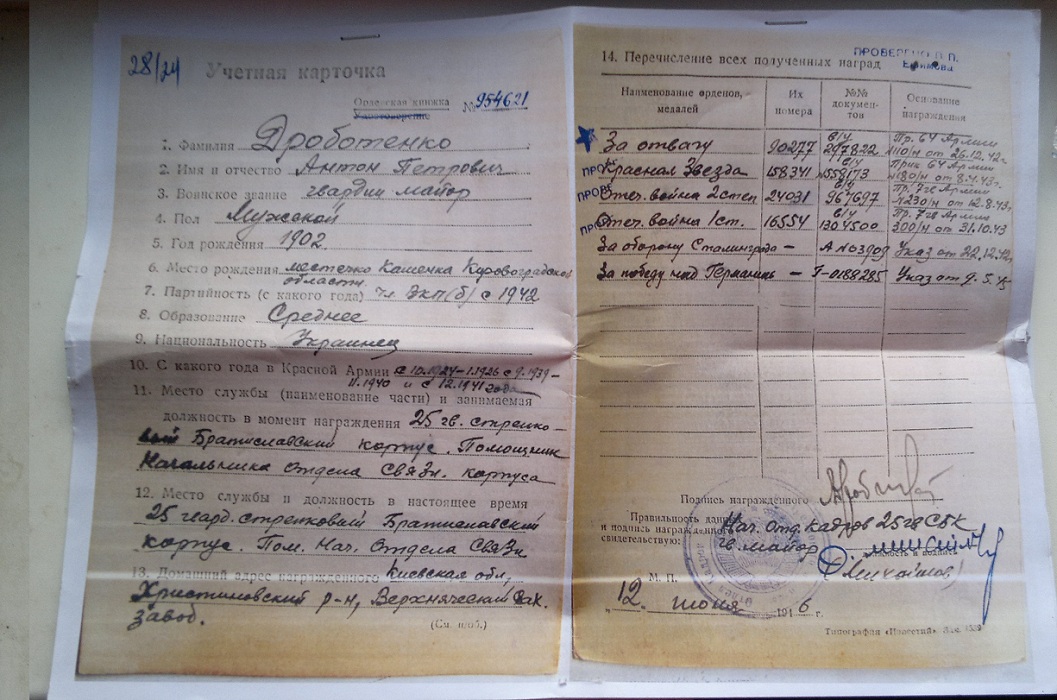 28/24
Учетная карточка
Орденская книжка
Удостоверение
№ 954621
1. Фамилия Дроботенко
2. Имя и отчество Антон Петрович
3. Воинское звание гвардии майор
4. Пол Мужской
5. Год рождения 1902.
6. Место рождения местечко Каменка Кировоградской
области.
7. Партийность (с какого года) чл. ВКП(б) с 1942
8. Образование Среднее
9. Национальность Украинец
10. С какого года в Красной Армии с 10.1924-1.1926 с 9.1939-
11.1940 и с 12.1941 года
11. Место службы (наименование части) и занимаемая
должность в момент награждения 25 гв. стрелко-
вый Братиславский корпус. Помощник
Начальника Отдела Связи. корпуса
12. Место службы и должность в настоящее время
25 гвард. стрелковый Братиславский
корпус. Пом. Нач. Отдела Связи.
13. Домашний адрес награжденного Киевская обл,
Христиновский р-н, Верхняческий Сах.
завод.
(См. н/об.)
ПРОВЕРЕНО
14. Перечисление всех полученных наград
Наименование орденов, медалей
Их номера
№№ документов
Основание награждения
За отвагу 90277 в/у 297822 Пр. 64 Армии №110/н от 26.12.42г.
Красная Звезда 158341 в/у №558173 Прик 64 Армии №180/н от 8.4.43г.
Отеч. война 2 степ 24031 в/у 967697 Пр. 7гв Армии №230/н от 12.8.43г.
Отеч. война 1 ст. 16554 в/у 1304500 Пр. 7гв Армии 300/н от 31.10.43
За оборону Сталинграда – Указ от 22.12.42г.
За победу над Германией – Указ от 9.5.45
Подпись награжденного
Правильность данных
и подпись награжденного
свидетельствую:
Нач. Отд. Кадров 25 гв СБК
гв. майор
(Михайлов)
М. П.
„12„ июня 1946 г.
Типография «Известий»